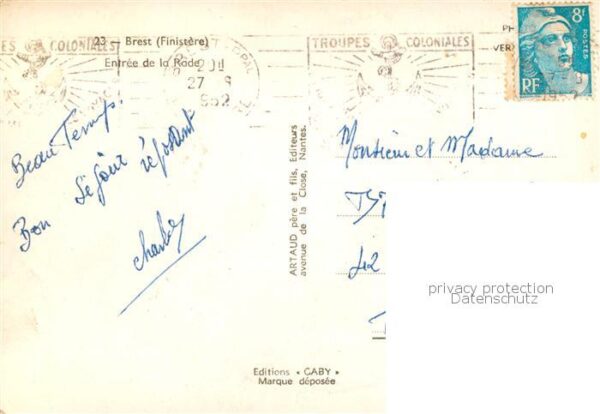 23 — Brest (Finistère)
Entrée de la Rade
TROUPES COLONIALES
TROUPES COLONIALES
27
952
8F
POSTES
RF
PH
VER
Beau Temps.
Bon Séjour réposant
Charles
ARTAUD père et fils, Editeurs
avenue de la Close, Nantes.
Monsieur et Madame
42
privacy protection
Datenschutz
Editions « GABY »
Marque déposée